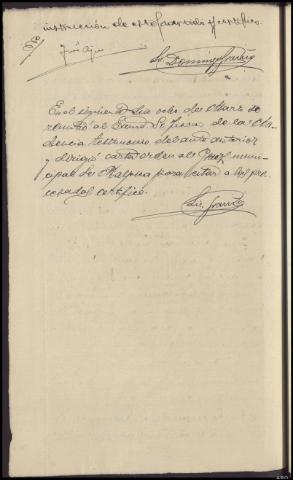 instrucción de este partido y certifico.
José
Domingo
En el siguiente día ocho de Marzo se
remitió al Excmo. Sr. Fiscal de la Au-
diencia testimonio del auto anterior
y dirigió carta orden al Juez muni-
cipal de Malpica para citar a los pro-
cesados certifico.